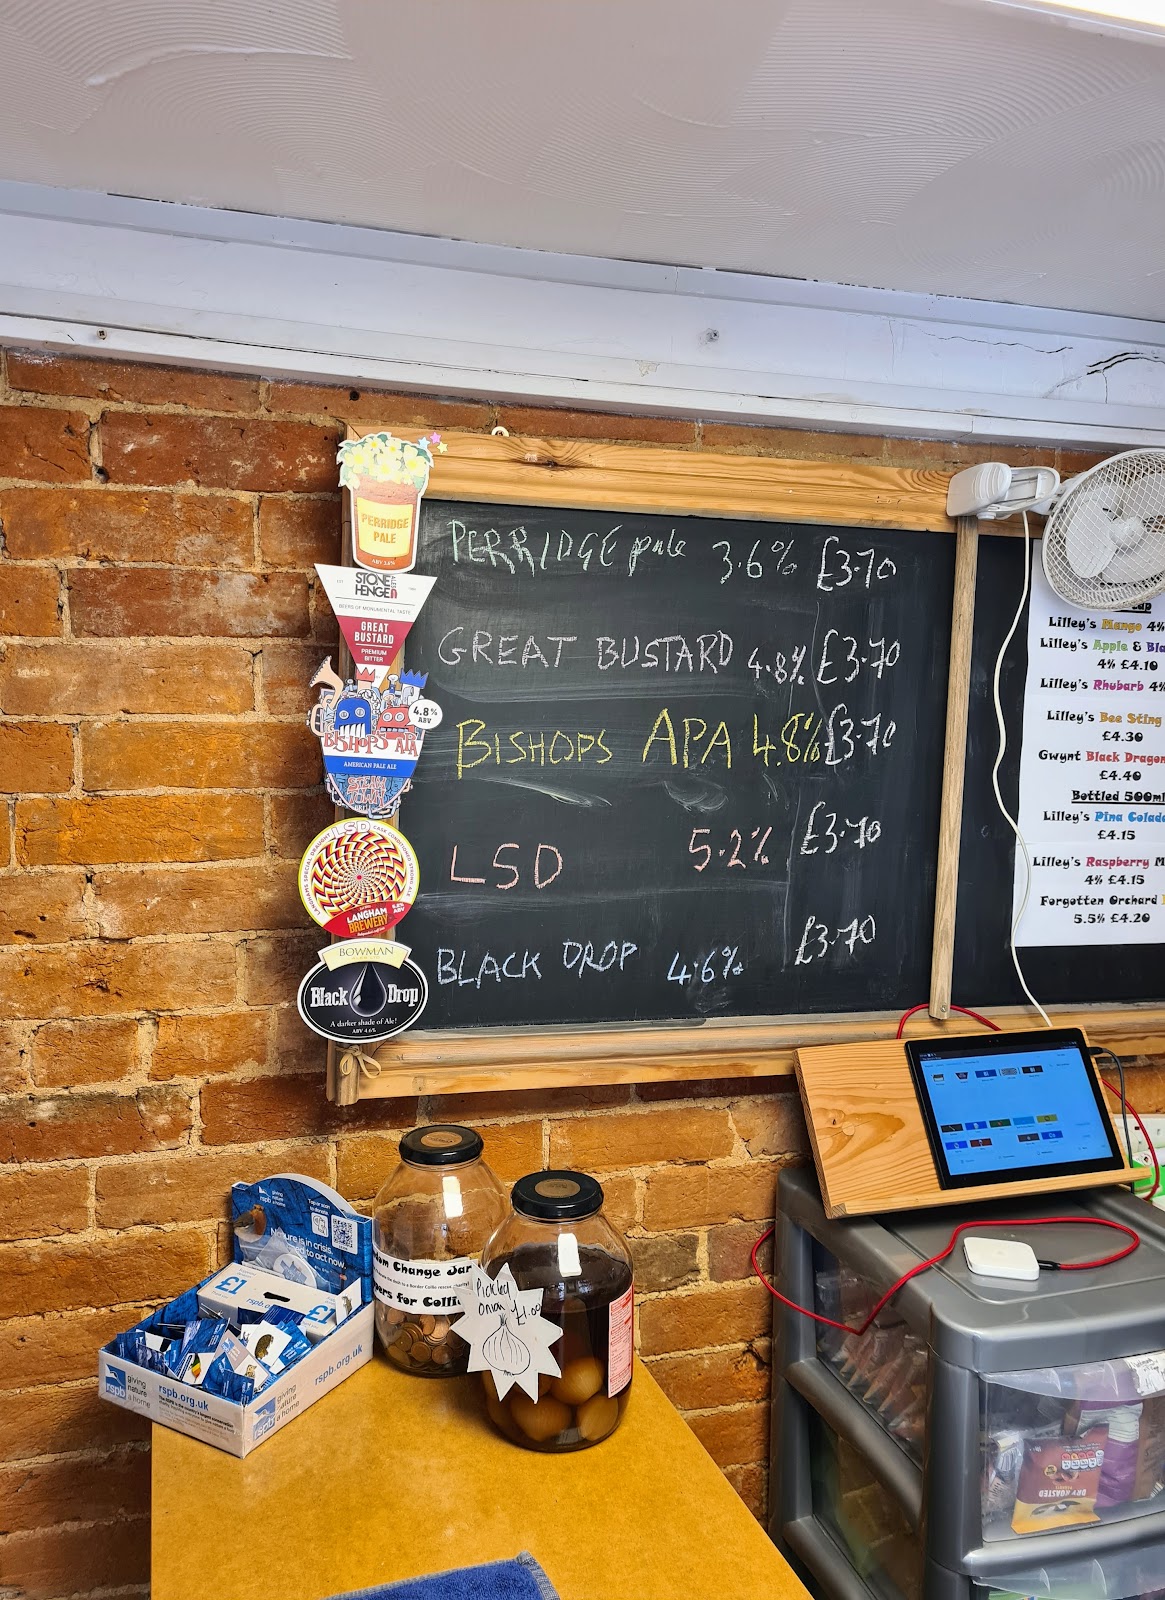 PERRIDGE pale 3.6% £3.70
GREAT BUSTARD 4.8% £3.70
BISHOPS APA 4.8% £3.70
LSD 5.2% £3.70
BLACK DROP 4.6% £3.70
PERRIDGE
PALE
STONE
HENGE
BEERS OF MONUMENTAL TASTE
GREAT
BUSTARD
PREMIUM
BITTER
4.8%
ABV
BISHOPS APA
AMERICAN PALE ALE
STEAM
TOWN
LSD
LANGHAM
BREWERY
BOWMAN
Black Drop
A darker shade of Ale!
ABV 4.6%
Lilley's Mango 4%
Lilley's Apple & Bla
4% £4.10
Lilley's Rhubarb 4%
Lilley's Bee Sting
£4.30
Gwynt Black Dragon
£4.40
Bottled 500ml
Lilley's Pina Colada
£4.15
Lilley's Raspberry M
4% £4.15
Forgotten Orchard
5.5% £4.20
rspb
giving
nature
a home
Nature is in crisis.
need to act now.
£1
£1
rspb
giving
nature
a home
rspb.org.uk
rspb.org.uk
rspb
giving
nature
a home
om Change Jar
ers for Colli
Pickled
onion £1.00
DRY ROASTED